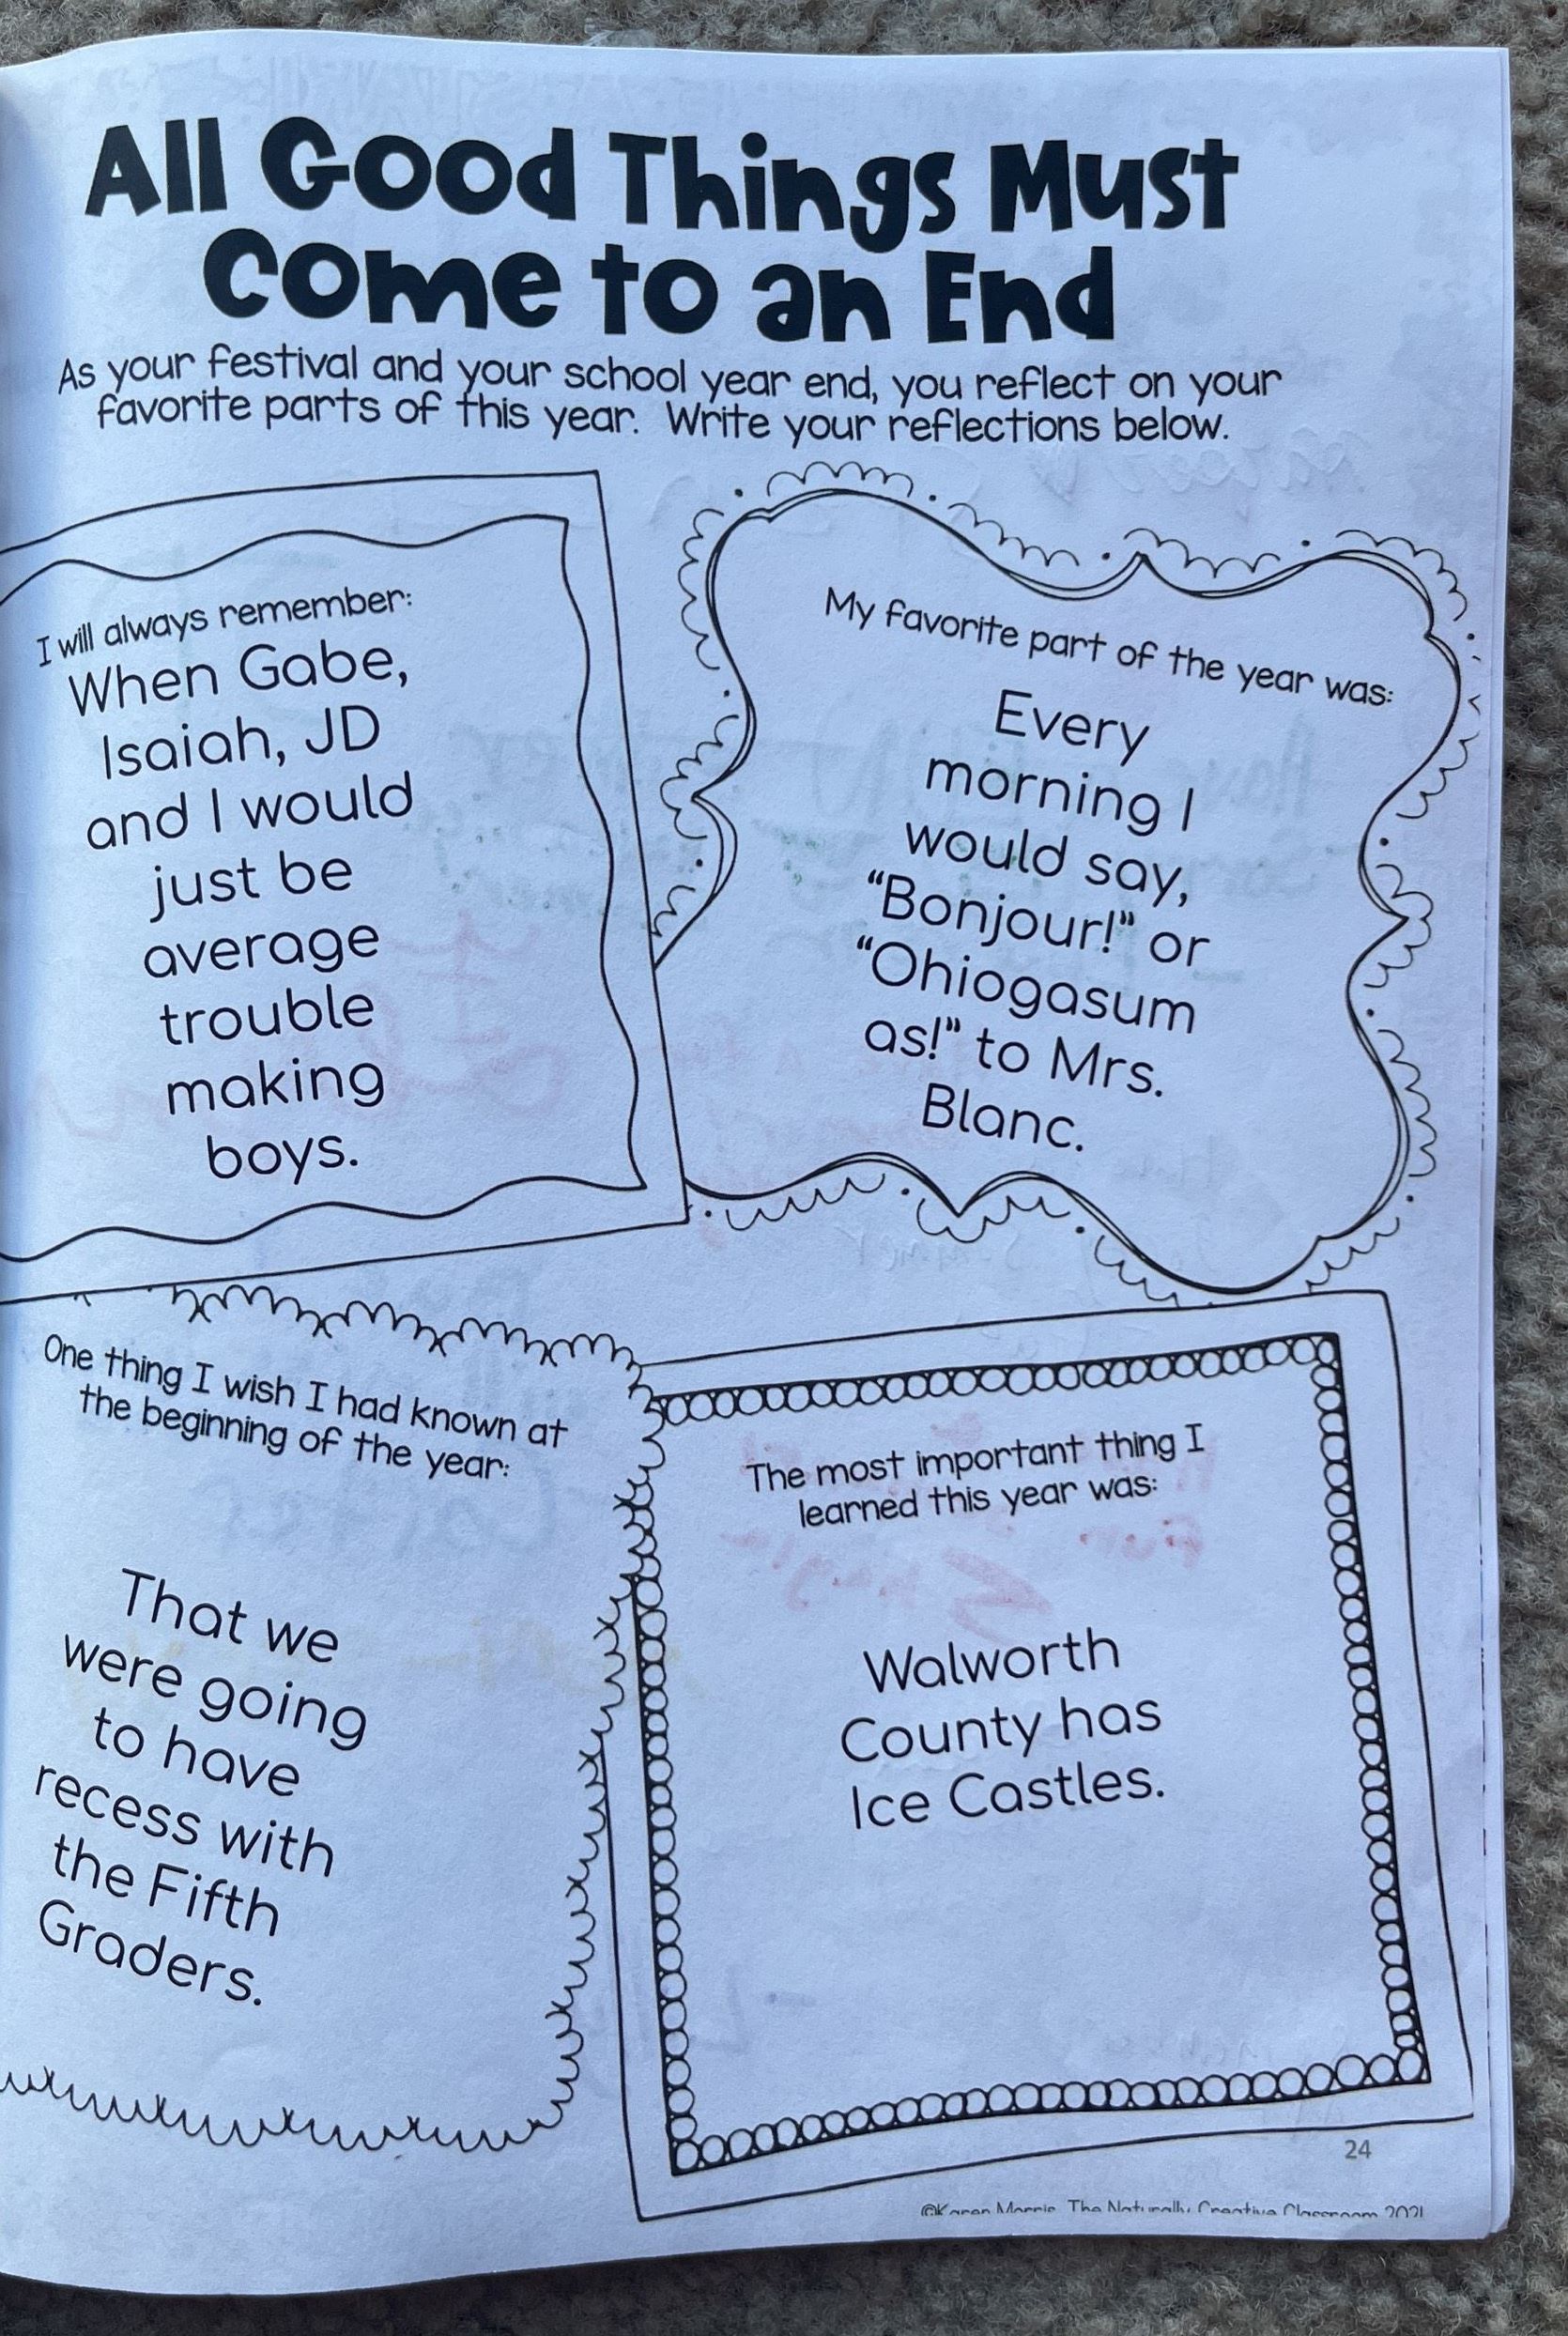 All Good Things Must
Come to an End
As your festival and your school year end, you reflect on your
favorite parts of this year. Write your reflections below.
I will always remember:
When Gabe,
Isaiah, JD
and I would
just be
average
trouble
making
boys.
My favorite part of the year was:
Every
morning I
would say,
“Bonjour!” or
“Ohiogasum
as!” to Mrs.
Blanc.
One thing I wish I had known at
the beginning of the year:
That we
were going
to have
recess with
the Fifth
Graders.
The most important thing I
learned this year was:
Walworth
County has
Ice Castles.
24
©Karen Morris, The Naturally Creative Classroom 2021